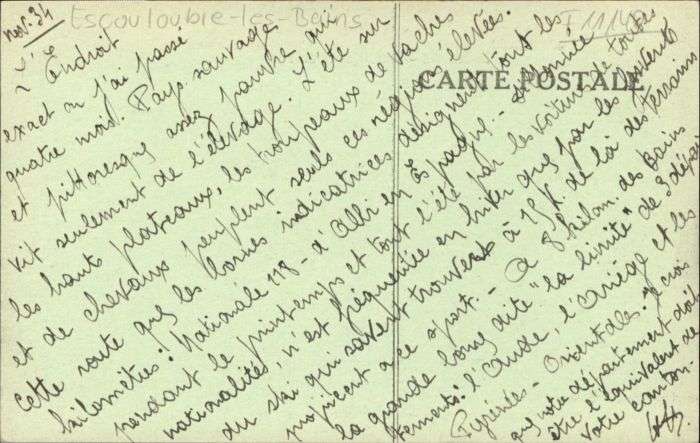 Escouloubre-les-Bains
F 11/40
CARTE POSTALE
nov. 34
L'Endroit
exact où j'ai passé
quatre mois. Pays sauvage
et pittoresque assez pauvre qui
vit seulement de l'élevage. L'été sur
les hauts plateaux, les troupeaux de vaches
et de chevaux peuplent seuls ces régions élevées.
Cette route que les bornes indicatrices désignent tout les
kilomètres: Nationale 118 - d'Albi en Espagne -
pendant le printemps et tout l'été par les voitures de toutes
nationalités, n'est fréquentée en hiver que par les fervents
du ski qui savent trouver à 15K de là des terrains
propices à ce sport. - A 8 kilom. des Bains
la grande borne dite "la limite" de 3 dépar
tements: l'Aude, l'Ariège et les
Pyrénées-Orientales. Je crois
que notre département doit
être l'équivalent de
votre canton.